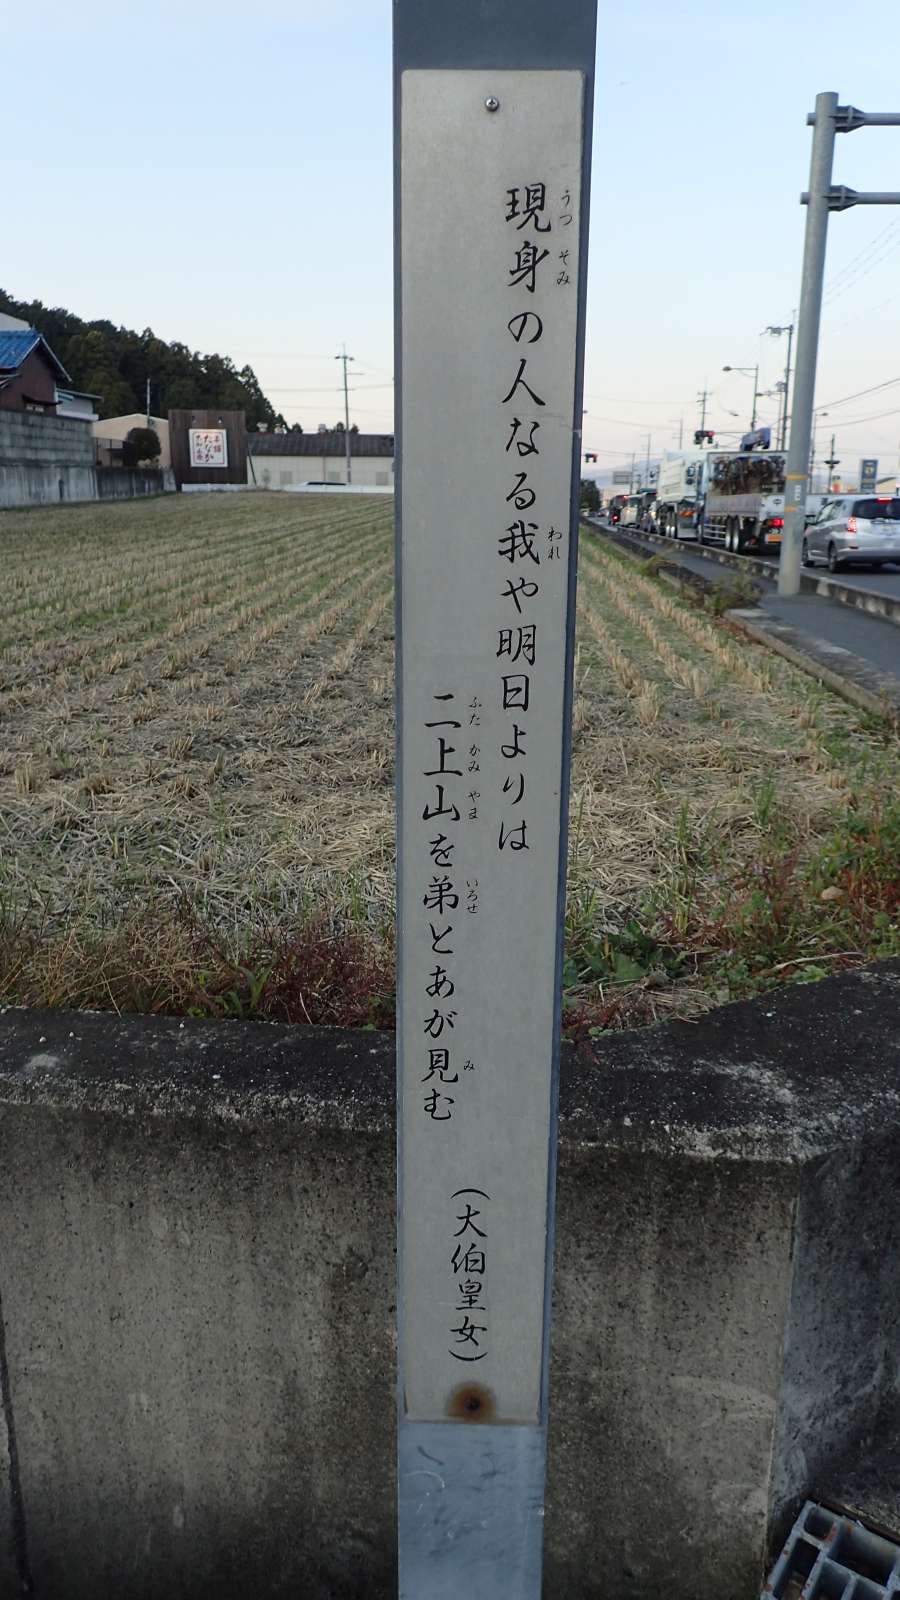 現身の人なる我や明日よりは
うつそみ
われ
二上山を弟とあが見む
ふたかみやま
いろせ
み
(大伯皇女)
たなか